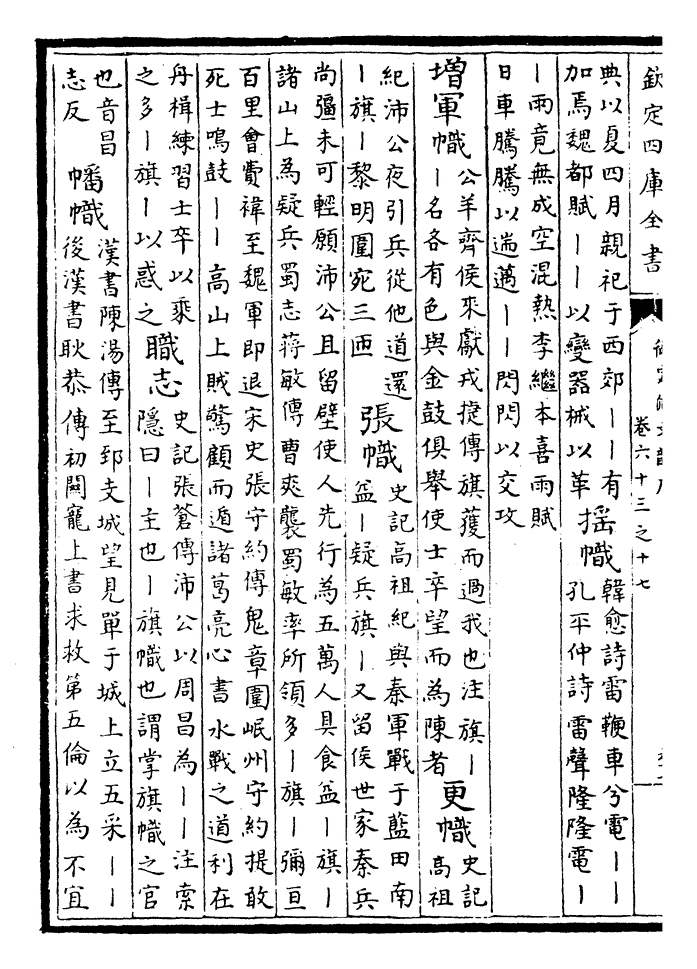 欽定四庫全書
卷六十三之十七
典以夏四月親祀于西郊丨丨有
加焉魏都賦丨丨以變器械以革
揺幟
韓愈詩雷鞭車兮電丨丨
孔平仲詩雷聲隆隆電丨
丨雨竟無成空混熱李繼本喜雨賦
日車騰騰以遄邁丨丨閃閃以交攻
增軍幟
公羊齊侯來獻戎捷傳旗獲而過我也注旗丨
丨名各有色與金鼓俱舉使士卒望而為陳者
更幟
史記
高祖
紀沛公夜引兵從他道還
丨旗丨黎明圍宛三匝
張幟
史記高祖紀與秦軍戰于藍田南
益丨疑兵旗丨又留侯世家秦兵
尚彊未可輕願沛公且留壁使人先行為五萬人具食益丨旗丨
諸山上為疑兵蜀志蔣敏傳曹爽襲蜀敏率所領多丨旗丨彌亘
百里會費禕至魏軍即退宋史張守約傳鬼章圍岷州守約提敢
死士鳴鼓丨丨高山上賊驚顧而遁諸葛亮心書水戰之道利在
舟楫練習士卒以乘
之多丨旗丨以惑之
職志
史記張蒼傳沛公以周昌為丨丨注索
隱曰丨主也丨旗幟也謂掌旗幟之官
也音昌
志反
幡幟
漢書陳湯傳至郅支城望見單于城上立五采丨丨
後漢書耿恭傳初關寵上書求救第五倫以為不宜